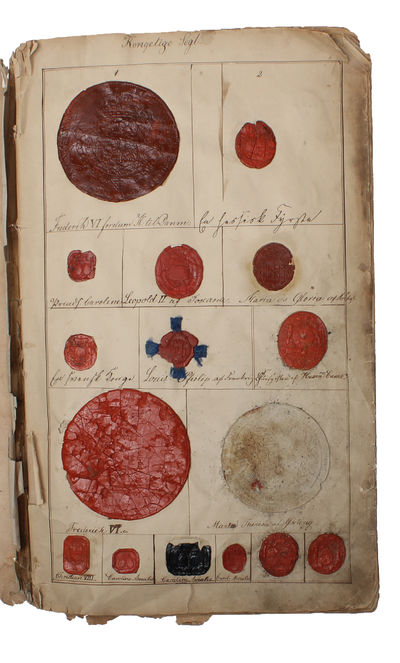 Kongelige Segl
1 2
Frederik VI fordum K. til Danm. En hessisk Fyrste
Prinds. Caroline Leopold II af Toscana. Maria da Gloria af
En svensk Konge Louis Philip af
Frederik VI. Maria Theresia af
Christian VIII. Caroline Amalie Caroline Amalie Carol. Amalie